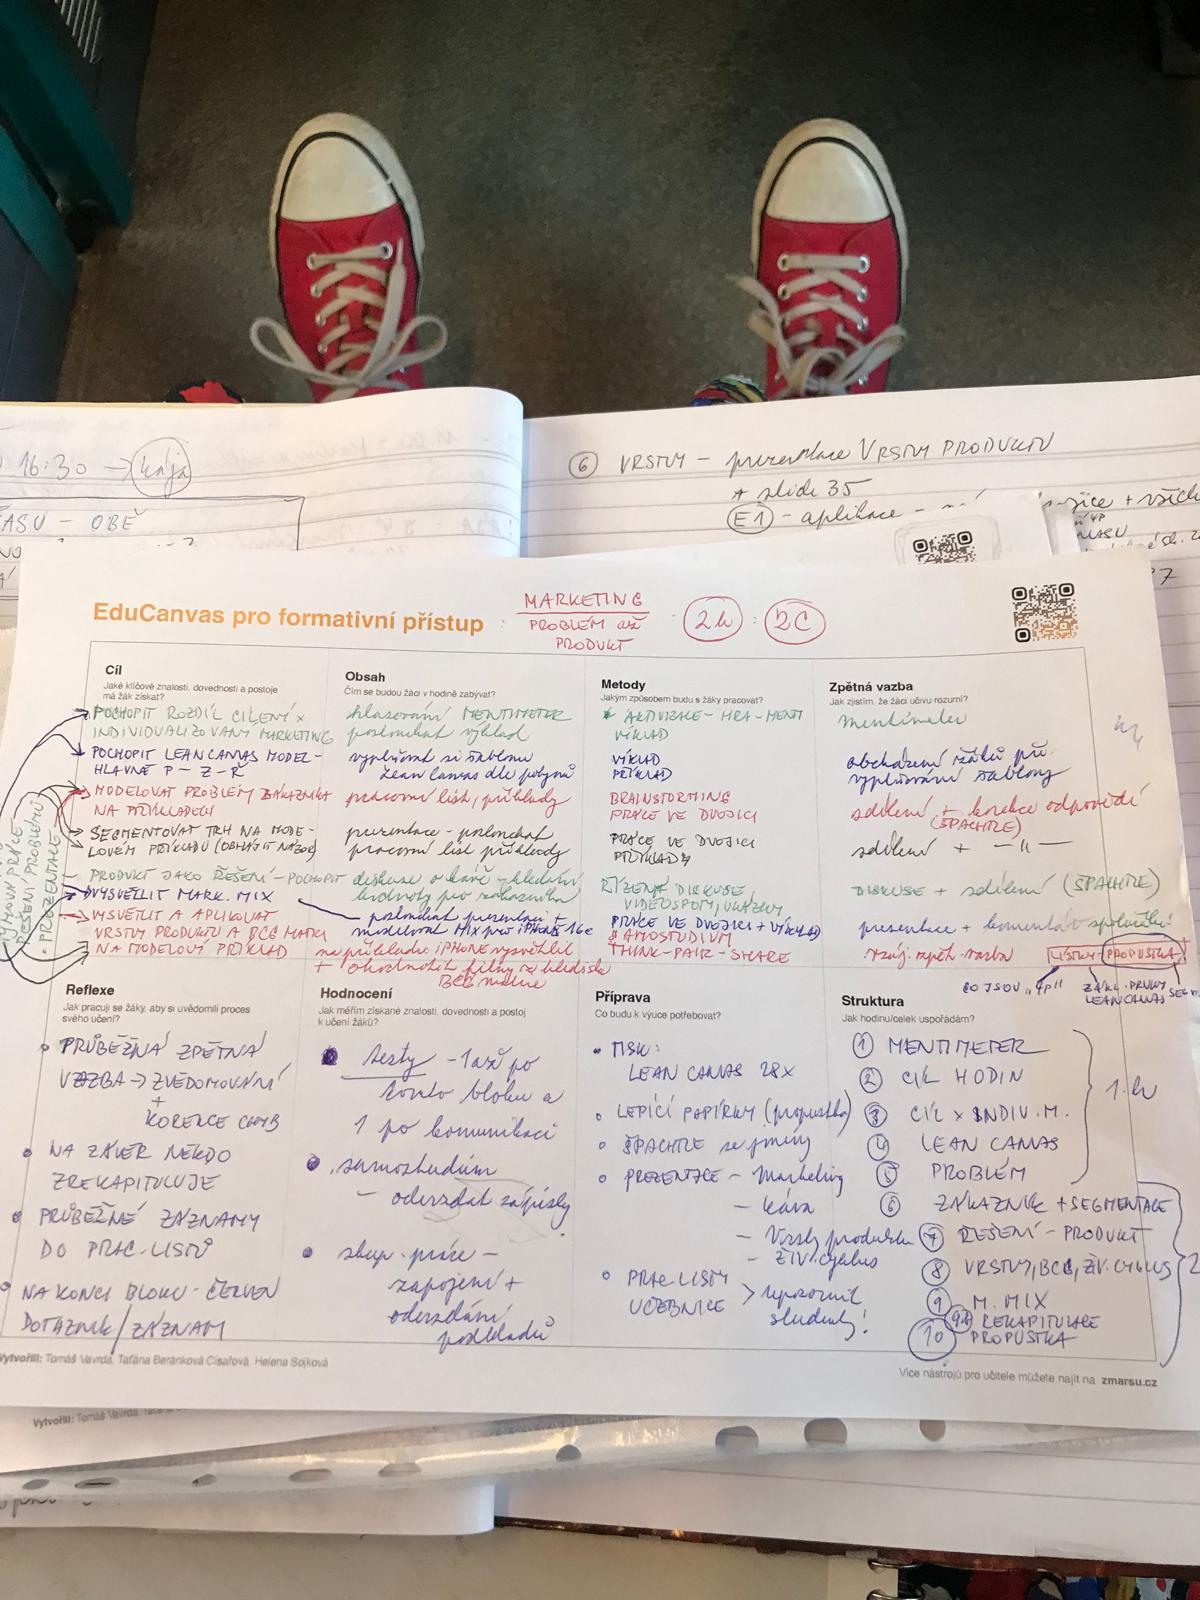 16:30 → Kája
ČASU - OBĚ
⑥ VRSTVY - prezentace VRSTVY PRODUKTU
+ slide 35
E1 - aplikace -
EduCanvas pro formativní přístup : MARKETING : 2h : 2C
PROBLÉM až
PRODUKT
Cíl
Jaké klíčové znalosti, dovednosti a postoje
má žák získat?
POCHOPIT ROZDÍL CÍLENÝ x
INDIVIDUALIZOVANÝ MARKETING
POCHOPIT LEAN CANVAS MODEL -
HLAVNĚ P - Z - Ř
MODELOVAT PROBLÉM ZÁKAZNÍKA
NA PŘÍKLADECH
SEGMENTOVAT TRH NA MODE-
LOVÉM PŘÍKLADU (OBHÁJIT NÁZOR)
PRODUKT JAKO ŘEŠENÍ - POCHOPIT
VYSVĚTLIT MARK. MIX
VYSVĚTLIT A APLIKOVAT
VRSTVY PRODUKTU A BCG MATICI
NA MODELOVÝ PŘÍKLAD
ŘEŠENÍ PROBLÉMŮ
• PREZENTACE
Obsah
Čím se budou žáci v hodině zabývat?
hlasování MENTIMETER
poslouchat výklad
vyplňovat si šablonu
Lean Canvas dle pokynů
pracovní list, příklady
prezentace - poslouchat
pracovní list příklady
diskuse o kávě - hledání
hodnoty pro zákazníka
poslouchat prezentaci +
modelovat MIX pro iPHONE 16e
na příkladu iPHONE vysvětlit
+ ohodnotit firmy z hlediska
BCG matice
Metody
Jakým způsobem budu s žáky pracovat?
AKTIVIZACE - HRA - MENTI
VÝKLAD
VÝKLAD
PŘÍKLAD
BRAINSTORMING
PRÁCE VE DVOJICI
PRÁCE VE DVOJICI
PŘÍKLADY
ŘÍZENÁ DISKUSE,
VIDEOSPOT, UKÁZKY
PRÁCE VE DVOJICI + VÝKLAD
SAMOSTUDIUM
THINK - PAIR - SHARE
Zpětná vazba
Jak zjistím, že žáci učivu rozumí?
mentimeter
obcházení žáků při
vyplňování šablony
sdílení + korekce odpovědí
(ŠPACHTLE)
sdílení + -"-
DISKUSE + sdílení (ŠPACHTLE)
prezentace + komentář spolužáků
vzáj. zpět. vazba LÍSTKY - PROPUSTKA
CO JSOU „4P“
ZÁKL. PRVKY
LEAN CANVAS
Reflexe
Jak pracuji se žáky, aby si uvědomili proces
svého učení?
• PRŮBĚŽNÁ ZPĚTNÁ
VAZBA → ZVĚDOMOVÁNÍ
+
KOREKCE CHYB
• NA ZÁVĚR NĚKDO
ZREKAPITULUJE
• PRŮBĚŽNÉ ZÁZNAMY
DO PRAC. LISTŮ
• NA KONCI BLOKU - ČERVEN
DOTAZNÍK / ZÁZNAM
Hodnocení
Jak měřím získané znalosti, dovednosti a postoj
k učení žáků?
• testy - 1 až po
tomto bloku a
1 po komunikaci
• samostudium
- odevzdat zápisky
• skup. práce -
zapojení +
odevzdání
podkladů
Příprava
Co budu k výuce potřebovat?
• TISK:
LEAN CANVAS 28X
• LEPÍCÍ PAPÍRKY (propustka)
• ŠPACHTLE se jmény
• PREZENTACE - Marketing
- káva
- Vrstvy produktu
- ŽIV. cyklus
• PRAC. LISTY
UČEBNICE > upozornit
studenty!
Struktura
Jak hodinu/celek uspořádám?
① MENTIMETER
② CÍL HODIN
③ CÍL x INDIV. M.
④ LEAN CANVAS
⑤ PROBLÉM
1. h
⑥ ZÁKAZNÍK + SEGMENTACE
⑦ ŘEŠENÍ - PRODUKT
⑧ VRSTVY, BCG, ŽIV. CYKLUS
⑨ M. MIX
REKAPITULACE
⑩ PROPUSTKA
2
Vytvořili: Tomáš Vavrda, Taťána Beránková Císařová, Helena Sojková
Více nástrojů pro učitele můžete najít na zmarsu.cz
Vytvořili: Tomáš Vavrda